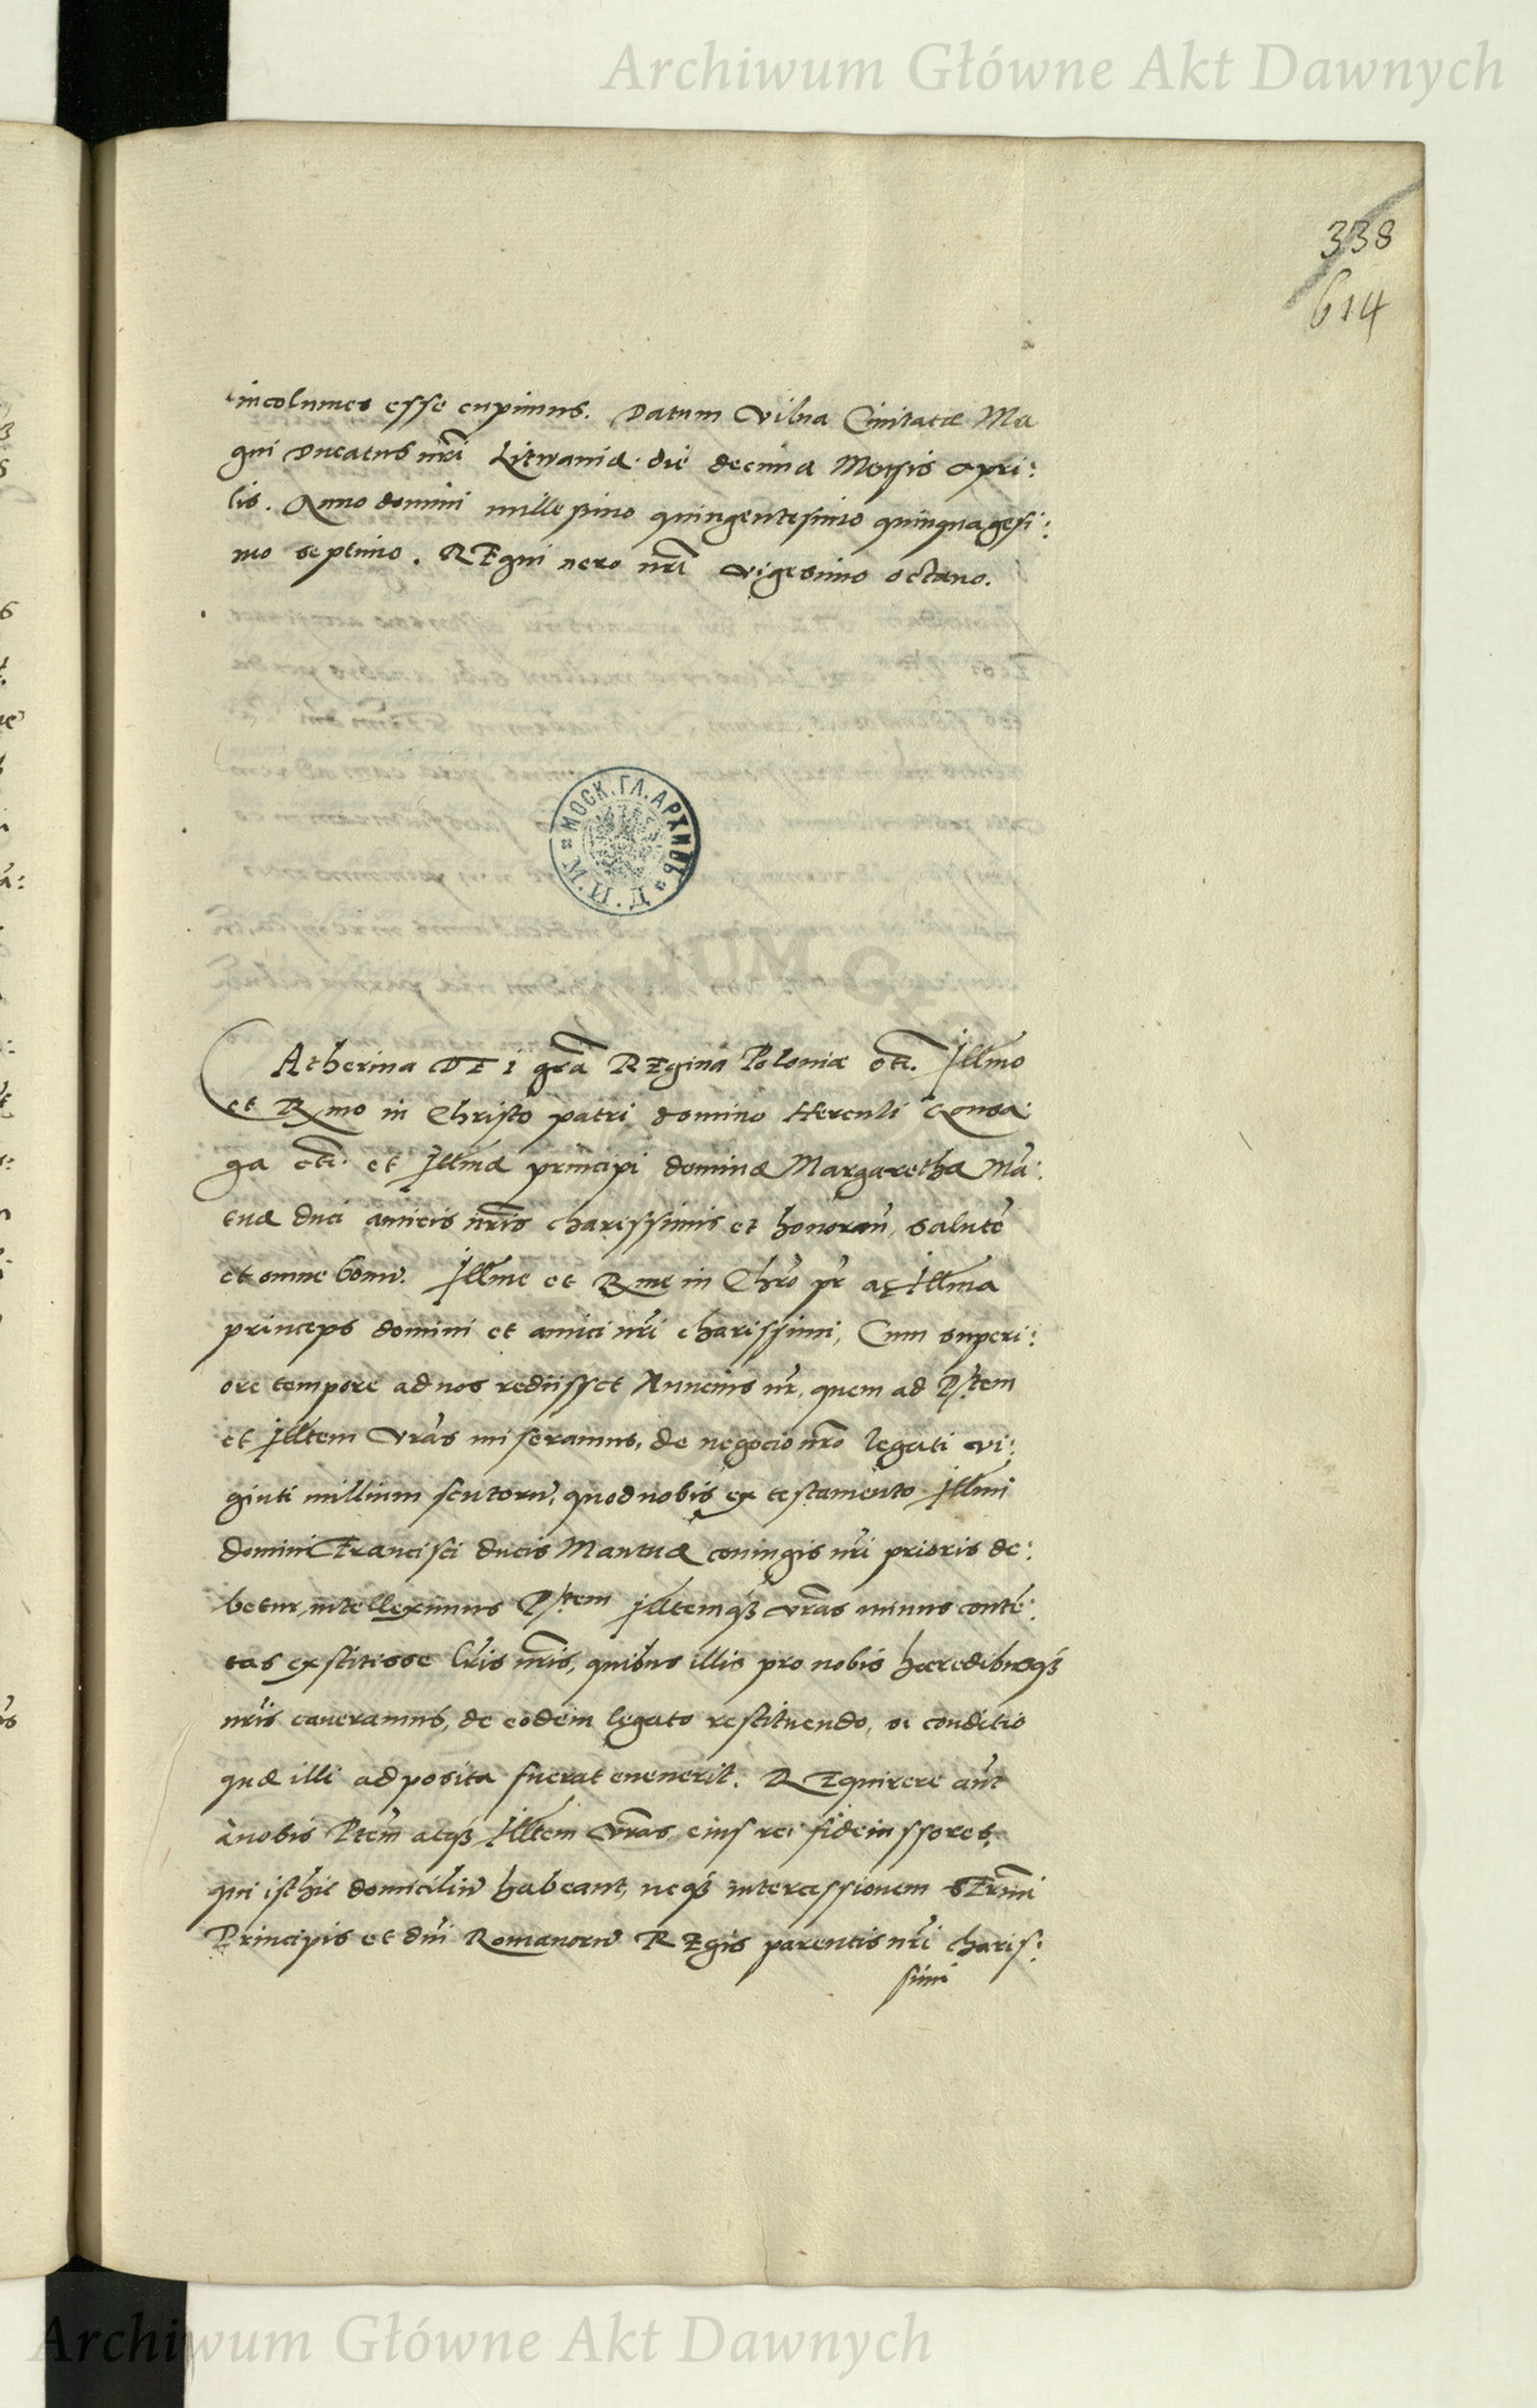 Archiwum Główne Akt Dawnych
338
614
incolumes esse cupimus. Datum Vilna Civitatæ Ma
gni Ducatus nrĩ Litwaniæ. die decima Mensis Apri:
lis. Anno domini millesimo quingentesimo quinquagesi:
mo septimo. REgni vero nrĩ vigesimo octavo.
МОСК. ГЛ. АРХИВЪ
М. И. Д.
CAtherina DEI grã REgina Poloniæ etc̃. Illmo
et Rmo in Christo patri domino Herculi Gonsa:
ga etc̃. et Illmæ principi dominæ Margarethæ Mã:
tuæ duci amicis nr̃is charissimis et honoran̄, salutẽ
et omne bonũ. Illme et Rme in Chrõ pr̃ ac Illma
princeps domini et amici nr̃i charissimi, Cum superi:
ore tempore ad nos rediisset Nuncius nr̃, quem ad Ptem
et Illtem vrãs miseramus, de negocio nrõ legati vi:
ginti millium scutorũ, quod nobis ex testamento Illmi
domini Francisci ducis Mantuæ coniugis nr̃i prioris de:
betur, intelleximus Ptem Illtemq̃ vrãs minus contẽ:
tas exstitisse lr̃is nr̃is, quibus illis pro nobis hæredibusq̃
nr̃is caveramus, de eodem legato restituendo, si conditio
quæ illi adposita fuerat evenerit. REquirere aũt
à nobis Ptem̃ atq̃ Illtem vrãs, eius rei fideiussores,
qui isthic domiciliũ habeant, neq̃ intercessionem SErm̃i
Principis et dñi Romanorũ REgis parentis nr̃i charis:
simi
Archiwum Główne Akt Dawnych